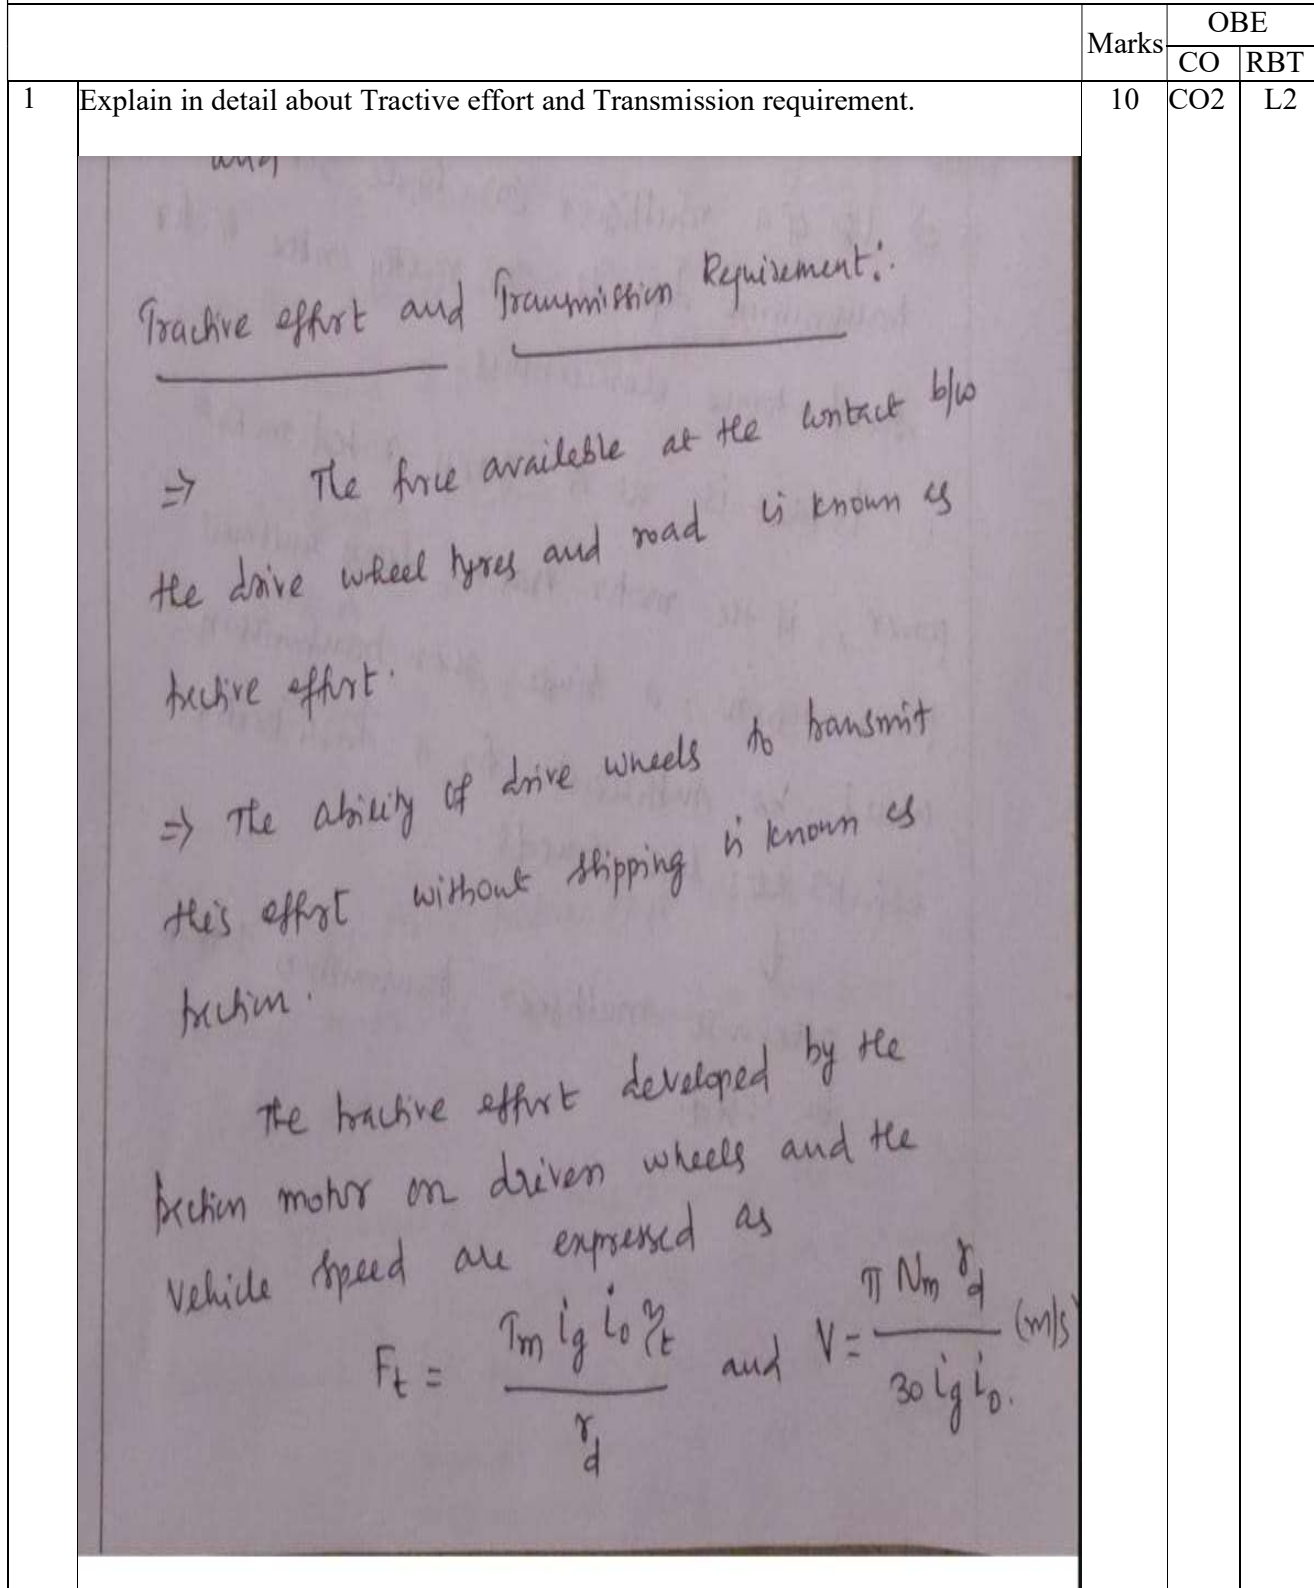 Marks
OBE
CO RBT
1 Explain in detail about Tractive effort and Transmission requirement. 10 CO2 L2
and
Tractive effort and Transmission Requirement:
=> The force available at the contact b/w
the drive wheel tyres and road is known as
tractive effort.
=> The ability of drive wheels to transmit
this effort without slipping is known as
traction.
The tractive effort developed by the
traction motor on driven wheels and the
vehicle speed are expressed as
F_t = T_m i_g i_0 η_t / r_d and V = π N_m r_d / 30 i_g i_0. (m/s)